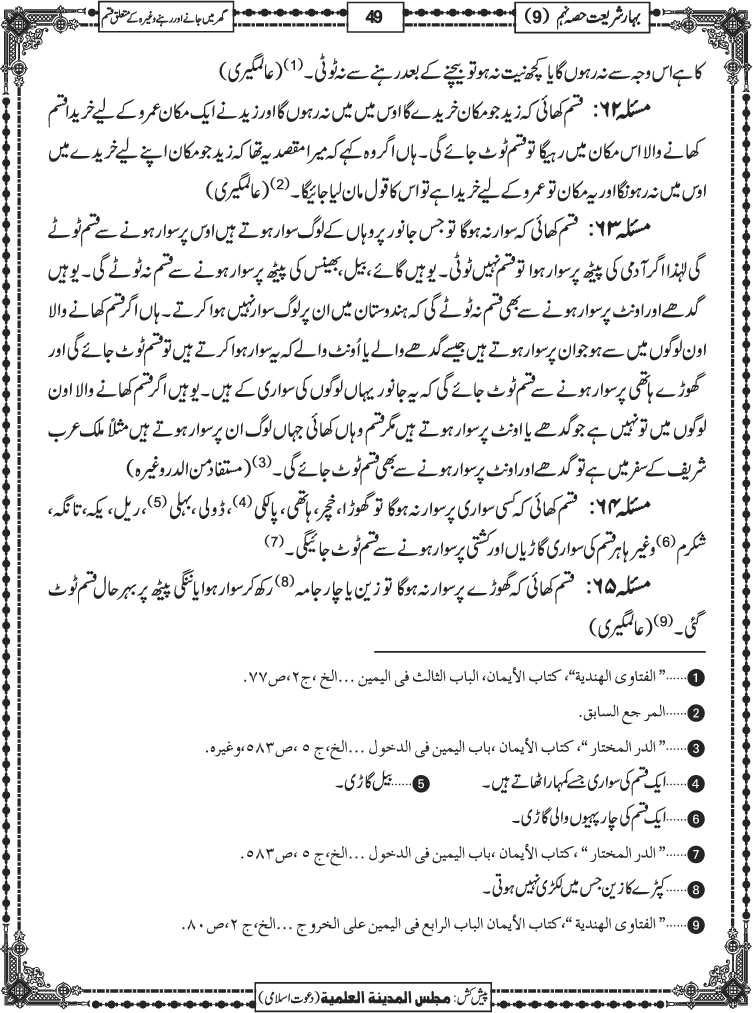 بہارِ شریعت حصہ نہم (9)
49
گھر میں جانے اور رہنے وغیرہ کے متعلق قسم
کا ہے اس وجہ سے نہ رہوں گا یا کچھ نیت نہ ہو تو بیچنے کے بعد رہنے سے نہ ٹوٹی۔(1) (عالمگیری)
مسئلہ ۶۲: قسم کھائی کہ زید جو مکان خریدے گا اوس میں میں نہ رہوں گا اور زید نے ایک مکان عمرو کے لیے خریدا قسم
کھانے والا اس مکان میں رہیگا تو قسم ٹوٹ جائے گی۔ ہاں اگر وہ کہے کہ میرا مقصد یہ تھا کہ زید جو مکان اپنے لیے خریدے میں
اوس میں نہ رہونگا اور یہ مکان تو عمرو کے لیے خریدا ہے تو اس کا قول مان لیا جائیگا۔(2) (عالمگیری)
مسئلہ ۶۳: قسم کھائی کہ سوار نہ ہوگا تو جس جانور پر وہاں کے لوگ سوار ہوتے ہیں اوس پر سوار ہونے سے قسم ٹوٹے
گی لہٰذا اگر آدمی کی پیٹھ پر سوار ہوا تو قسم نہیں ٹوٹی۔ یوہیں گائے، بیل، بھینس کی پیٹھ پر سوار ہونے سے قسم نہ ٹوٹے گی۔ یوہیں
گدھے اور اونٹ پر سوار ہونے سے بھی قسم نہ ٹوٹے گی کہ ہندوستان میں ان پر لوگ سوار نہیں ہوا کرتے۔ ہاں اگر قسم کھانے والا
اون لوگوں میں سے ہو جو ان پر سوار ہوتے ہیں جیسے گدھے والے یا اُونٹ والے کہ یہ سوار ہوا کرتے ہیں تو قسم ٹوٹ جائے گی اور
گھوڑے ہاتھی پر سوار ہونے سے قسم ٹوٹ جائے گی کہ یہ جانور یہاں لوگوں کی سواری کے ہیں۔ یوہیں اگر قسم کھانے والا اون
لوگوں میں تو نہیں ہے جو گدھے یا اونٹ پر سوار ہوتے ہیں مگر قسم وہاں کھائی جہاں لوگ ان پر سوار ہوتے ہیں مثلاً ملک عرب
شریف کے سفر میں ہے تو گدھے اور اونٹ پر سوار ہونے سے بھی قسم ٹوٹ جائے گی۔(3) (مستفاد من الدر وغیرہ)
مسئلہ ۶۴: قسم کھائی کہ کسی سواری پر سوار نہ ہوگا تو گھوڑا، خچر، ہاتھی، پالکی(4)، ڈولی، بہلی(5)، ریل، یکہ، تانگہ،
شکرم(6) وغیرہا ہر قسم کی سواری گاڑیاں اور کشتی پر سوار ہونے سے قسم ٹوٹ جائیگی۔(7)
مسئلہ ۶۵: قسم کھائی کہ گھوڑے پر سوار نہ ہوگا تو زین یا چار جامہ(8) رکھ کر سوار ہوا یا ننگی پیٹھ پر بہر حال قسم ٹوٹ
گئی۔(9) (عالمگیری)
1......"الفتاوی الهندية"، كتاب الأيمان، الباب الثالث فی اليمين ...الخ، ج۲، ص۷۷.
2......المرجع السابق.
3......"الدر المختار"، كتاب الأيمان، باب اليمين فی الدخول ...الخ، ج۵، ص۵۸۳، وغیرہ.
4......ایک قسم کی سواری جسے کہار اٹھاتے ہیں۔ 5......بیل گاڑی۔
6......ایک قسم کی چار پہیوں والی گاڑی۔
7......"الدر المختار"، كتاب الأيمان، باب اليمين فی الدخول ...الخ، ج۵، ص۵۸۳.
8......کپڑے کا زین جس میں لکڑی نہیں ہوتی۔
9......"الفتاوی الهندية"، كتاب الأيمان الباب الرابع فی اليمين علی الخروج ...الخ، ج۲، ص۸۰.
پیش کش: مجلس المدینة العلمیة (دعوت اسلامی)